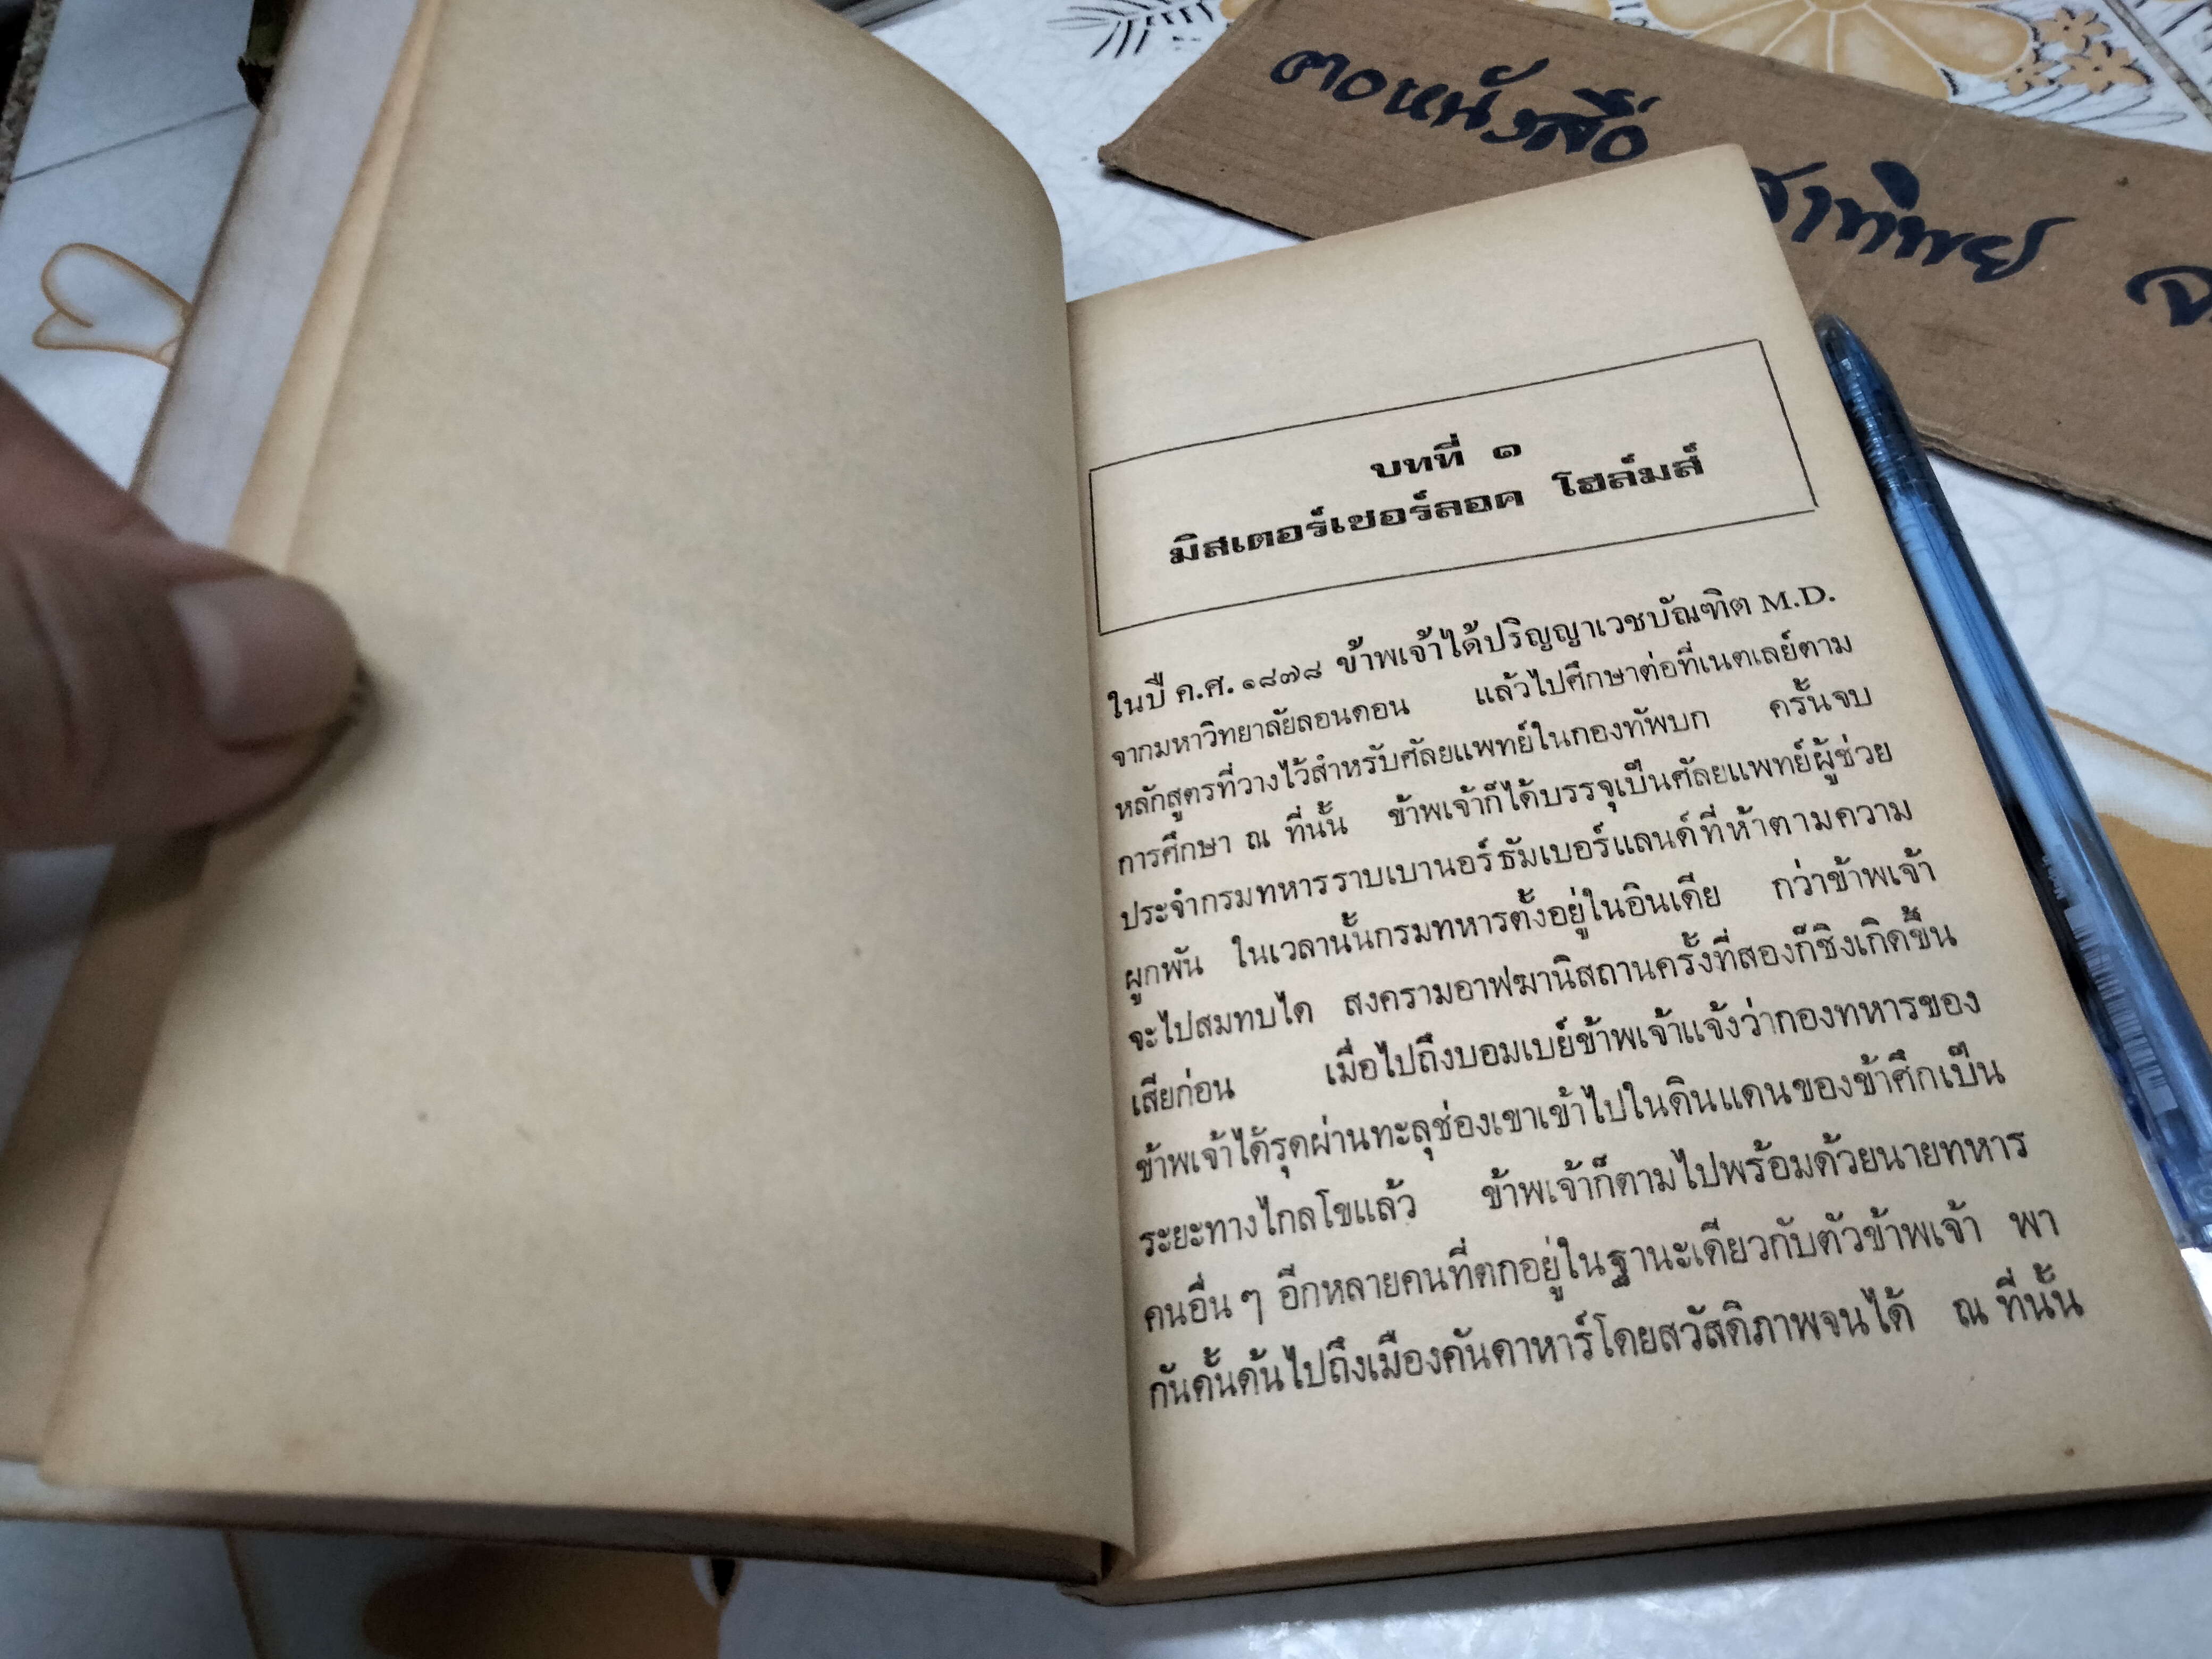 ตอหนังสือ
าทิพย์ จ
บทที่ ๑
มิสเตอร์เชอร์ลอค โฮล์มส์
ในปี ค.ศ. ๑๘๗๘ ข้าพเจ้าได้ปริญญาเวชบัณฑิต M.D.
จากมหาวิทยาลัยลอนดอน แล้วไปศึกษาต่อที่เนตเลย์ตาม
หลักสูตรที่วางไว้สำหรับศัลยแพทย์ในกองทัพบก ครั้นจบ
การศึกษา ณ ที่นั้น ข้าพเจ้าก็ได้บรรจุเป็นศัลยแพทย์ผู้ช่วย
ประจำกรมทหารราบเบานอร์ธัมเบอร์แลนด์ที่ห้าตามความ
ผูกพัน ในเวลานั้นกรมทหารตั้งอยู่ในอินเดีย กว่าข้าพเจ้า
จะไปสมทบได สงครามอาฟฆานิสถานครั้งที่สองก็ชิงเกิดขึ้น
เสียก่อน เมื่อไปถึงบอมเบย์ข้าพเจ้าแจ้งว่ากองทหารของ
ข้าพเจ้าได้รุดผ่านทะลุช่องเขาเข้าไปในดินแดนของข้าศึกเป็น
ระยะทางไกลโขแล้ว ข้าพเจ้าก็ตามไปพร้อมด้วยนายทหาร
คนอื่น ๆ อีกหลายคนที่ตกอยู่ในฐานะเดียวกับตัวข้าพเจ้า พา
กันดั้นด้นไปถึงเมืองคันดาหาร์โดยสวัสดิภาพจนได้ ณ ที่นั้น